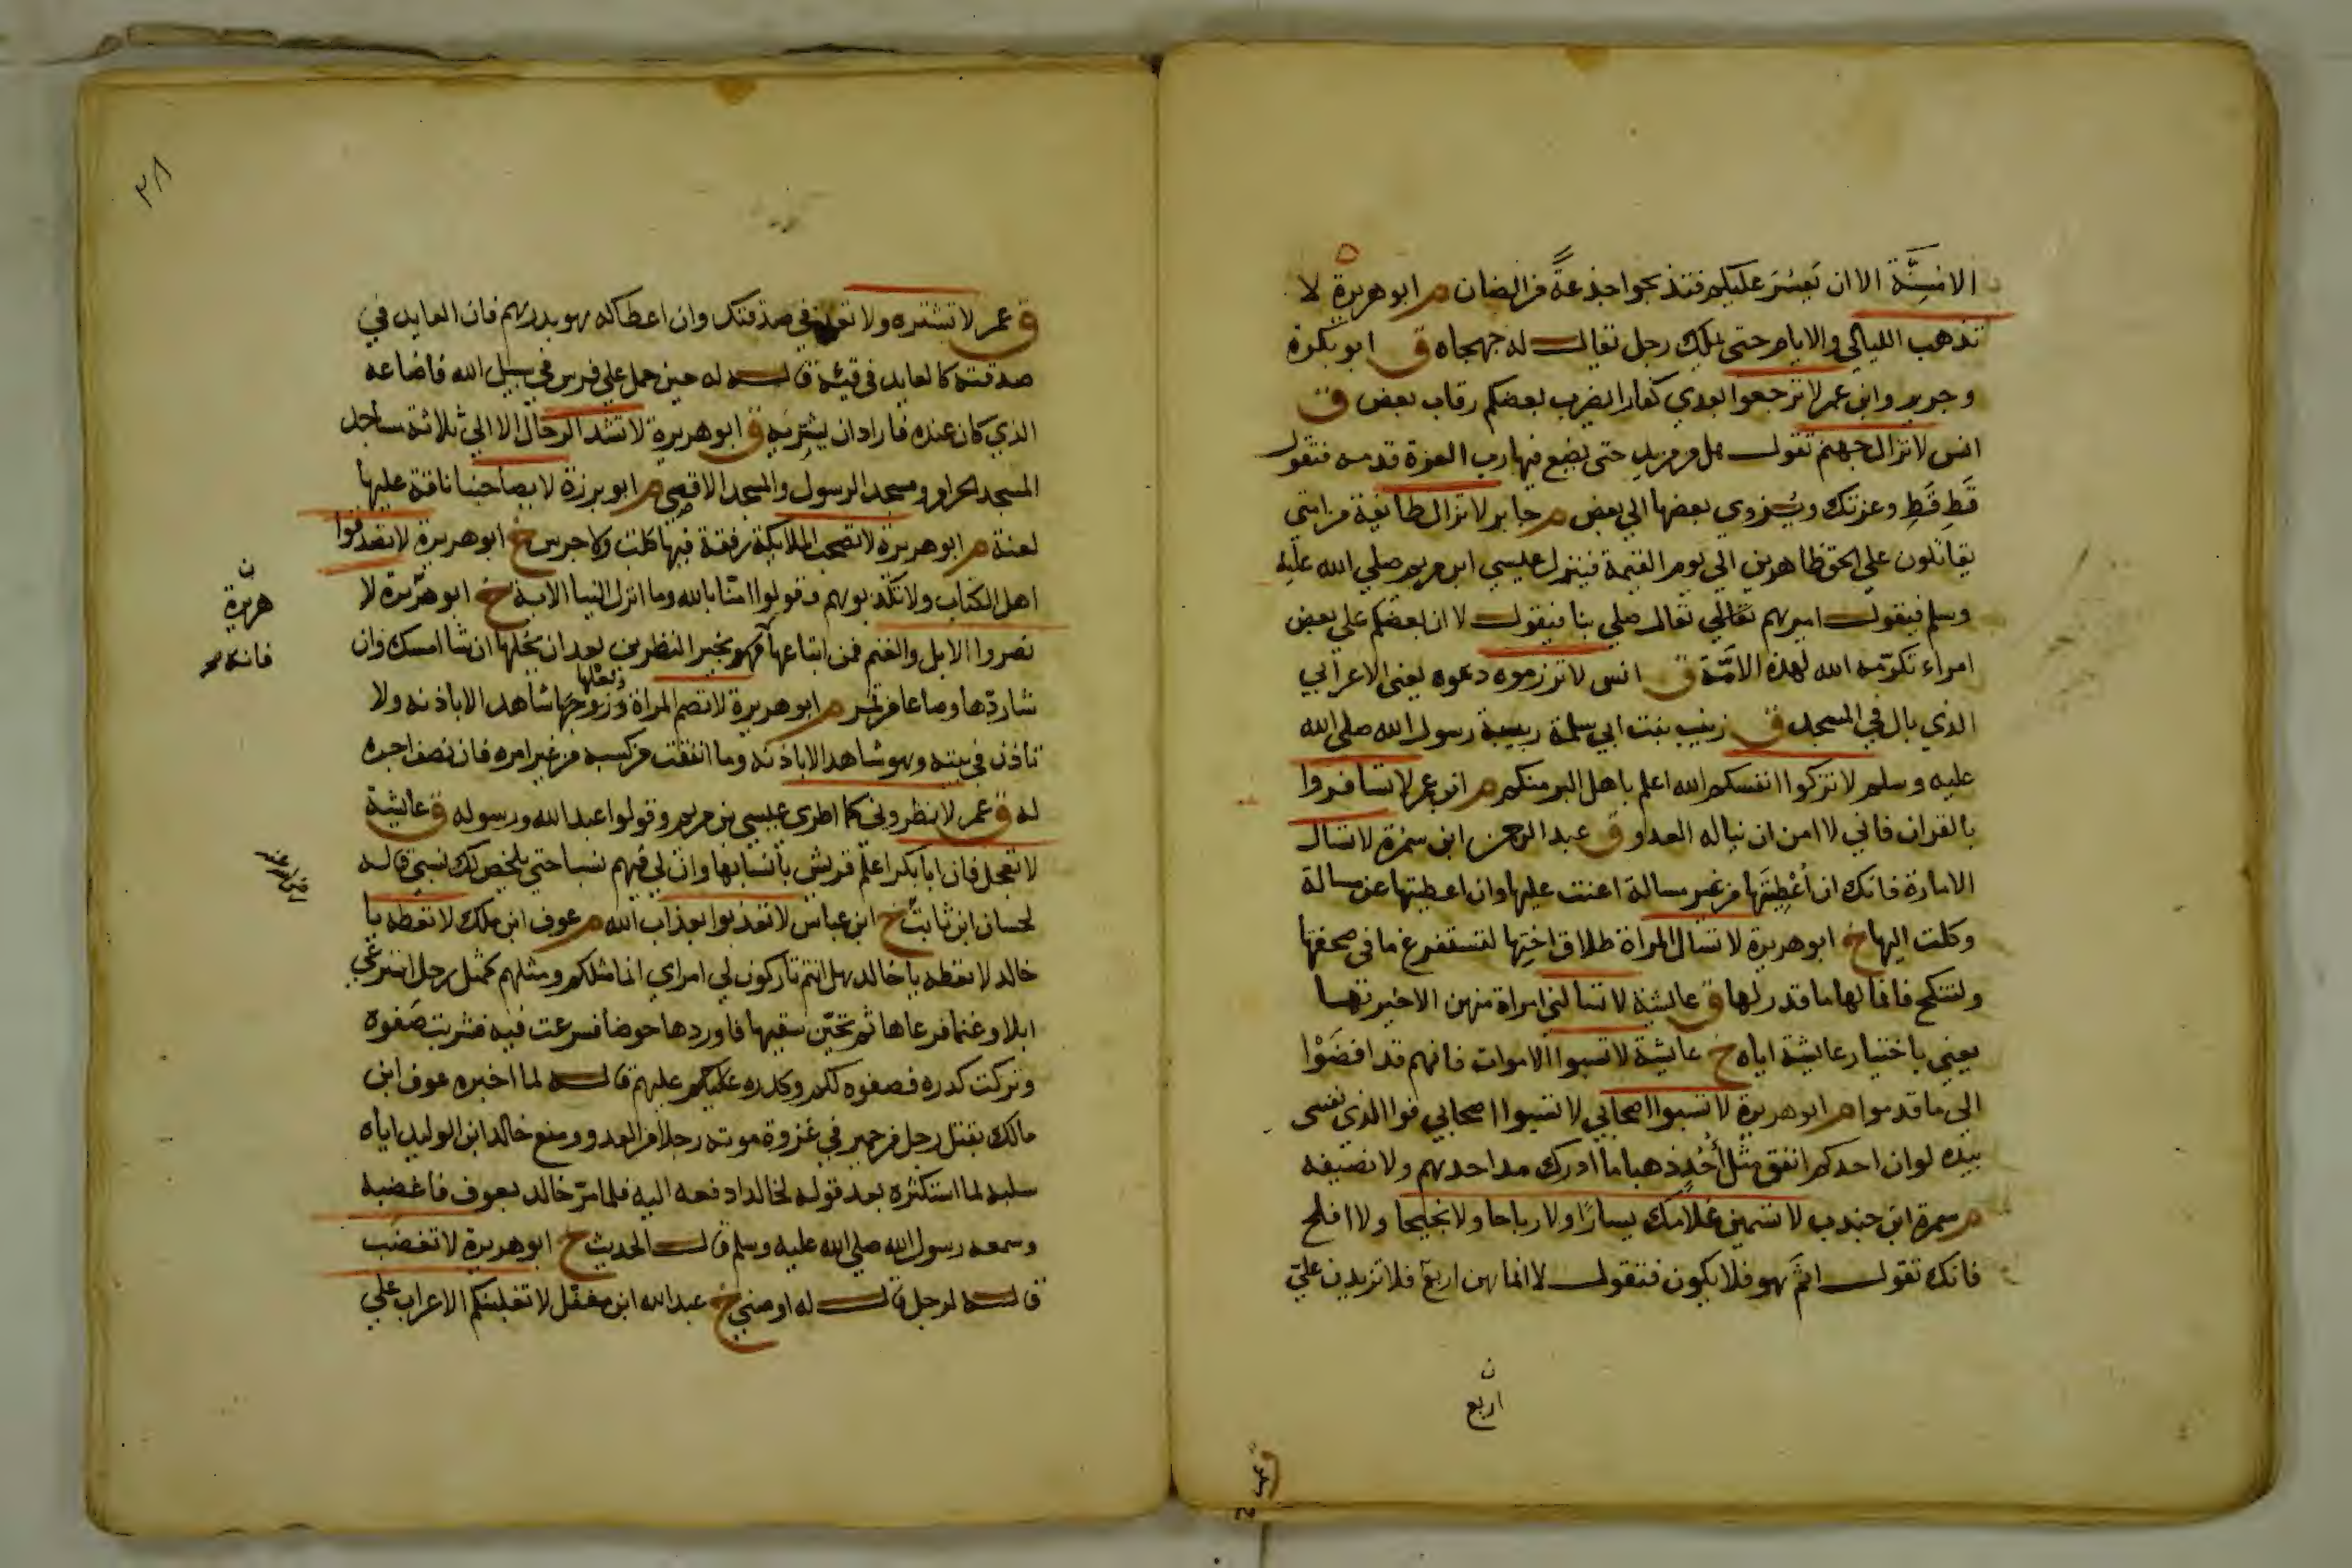 الا مسنة الا ان يعسر عليكم فتذبحوا جذعة من الضان م ابو هريرة لا
تذهب الليالي والايام حتى يملك رجل يقال له جهجاه ق ابو بكرة
وجرير وابن عمر لا ترجعوا بعدي كفارا يضرب بعضكم رقاب بعض ق
انس لا تزال جهنم تقول هل من مزيد حتى يضع فيها رب العزة قدمه فتقول
قَطِ قَطِ وعزتك ويُزوي بعضها الي بعض م جابر لا تزال طائفة من امتي
يقاتلون علي الحق ظاهرين الي يوم القيمة فينزل عيسي ابن مريم صلي الله عليه
وسلم فيقول اميرهم تعالي تعال صلي بنا فيقول لا ان بعضكم علي بعض
امراء تكرمة الله لهذه الامّة ق انس لا تزرموه دعوه يعني الاعرابي
الذي بال في المسجد ق زينب بنت ابي سلمة ربيبة رسول الله صلي الله
عليه وسلم لا تزكوا انفسكم الله اعلم باهل البر منكم م ابن عمر لا تسافروا
بالقران فاني لا امن ان يناله العدو ق عبد الرحمن ابن سمرة لا تسال
الامارة فانك ان اعطيتها من غير مسالة اعنت عليها وان اعطيتها عن مسالة
وكلت اليها خ ابو هريرة لا تسال المراة طلاق اختها لتستفرغ ما في صحفتها
ولتنكح فانما لها ما قدر لها ق عايشة لا تسالني امراة منهن الا خبرتها
يعني باختيار عايشة اياه خ عايشة لا تسبوا الاموات فانهم قد افضَوْا
الي ما قدموا م ابو هريرة لا تسبوا اصحابي لا تسبوا اصحابي فوا الذي نفسي
بيده لو ان احدكم انفق مثل أُحُدٍ ذهبا ما ادرك مد احدهم ولا نصيفه
م سمرة ابن جندب لا تسمين غلامك يسارًا ولا رباحا ولا نجيحا ولا افلح
فانك تقول اثَمَّ هو فلا يكون فتقول لا انما هن اربع فلا تزيدن عليّ
ن
اربع
ق عمر
٣٨
ق عمر لا تشتره ولا تعد في صدقتك وان اعطاكه بدرهم فان العايد في
صدقته كالعايد في قيئه قاله له حين حمل علي فرس في سبيل الله فاضاعه
الذي كان عنده فاراد ان يشتريه ق ابو هريرة لا تشد الرحال الا الي ثلاثة مساجد
المسجد الحرام ومسجد الرسول والمسجد الاقصي م ابو برزة لا يصاحبنا ناقة عليها
لعنة م ابو هريرة لا تصحب الملايكة رفقة فيها كلب ولا جرس خ ابو هريرة لا تصدقوا
اهل الكتاب ولا تكذبوهم وقولوا امنا بالله وما انزل الينا الاية خ ابو هريرة لا
تصروا الابل والغنم فمن ابتاعها فهو بخير النظرين بعد ان يحلبها ان شا امسك وان
شا ردّها وصاعا من تمر م ابو هريرة لا تصم المراة وزوجها شاهد الا باذنه ولا
وبعلها
تاذن في بيته وهو شاهد الا باذنه وما انفقت من كسبه من غير امره فان نصف اجره
له ق عمر لا تطروني كما اطري عيسي بن مريم وقولوا عبد الله ورسوله ق عايشة
لا تعجل فان ابا بكر اعلم قريش بأنسابها وان لي فيهم نسبا حتي يلخص لك نسبي قاله
لحسان ابن ثابت خ ابن عباس لا تعذبوا بعذاب الله م عوف ابن ملك لا تعطه يا
خالد لا تعطه يا خالد هل انتم تاركون لي امراي انما مثلكم ومثلهم كمثل رجل استرعي
ابلا وغنما فرعاها ثم تحيّن سقيها فاوردها حوضا فسرعت فيه فشربت صفوه
وتركت كدره فصفوه لكم وكدره عليكم عليهم قاله لما اخبره عوف ابن
مالك بقتل رجل من حمير في غزوة موته رجلا من العدو ومنع خالد ابن الوليد اياه
سلبه لما استكثره بعد قوله لخالد ادفعه اليه فلما مرّ خالد بعوف فاغضبه
وسمعه رسول الله صلي الله عليه وسلم قال الحديث خ ابو هريرة لا تغضب
قاله لرجل قال له اوصني خ عبد الله ابن مغفّل لا تغلبنكم الاعراب علي
ن
هريرة